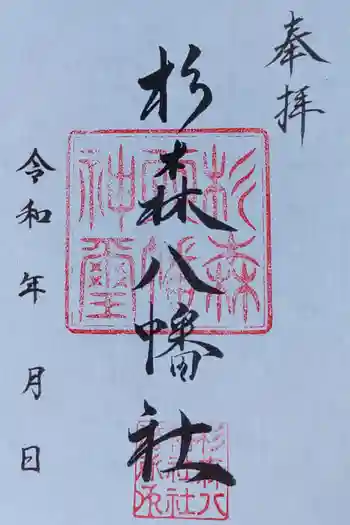 奉拝
杉森八幡社
令和 年 月 日
杉森八幡神璽